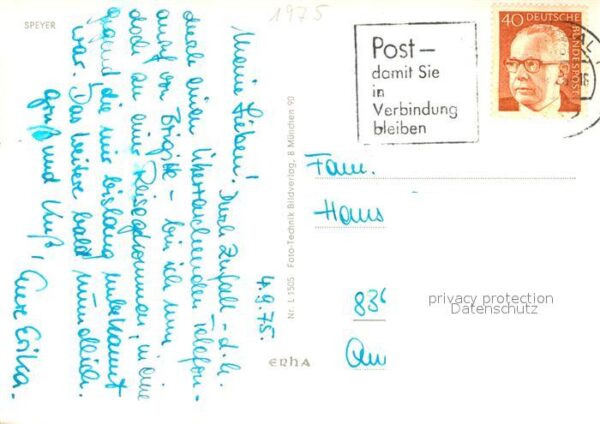 SPEYER
1975
4.9.75.
Meine Lieben! Durch Zufall - d.h.
durch einen überraschenden Telefon-
anruf von Brigitte - bin ich nun
doch zu einer Reise gekommen, in eine
Gegend, die mir bislang unbekannt
war. Das weitere bald mündlich.
Gruß und Kuß,
Eure Erika.
Nr. L 1505 Foto-Technik Bildverlag, 8 München 90
ERHA
Post –
damit Sie
in
Verbindung
bleiben
40 DEUTSCHE
BUNDESPOST
Fam.
Hans
836
privacy protection
Datenschutz